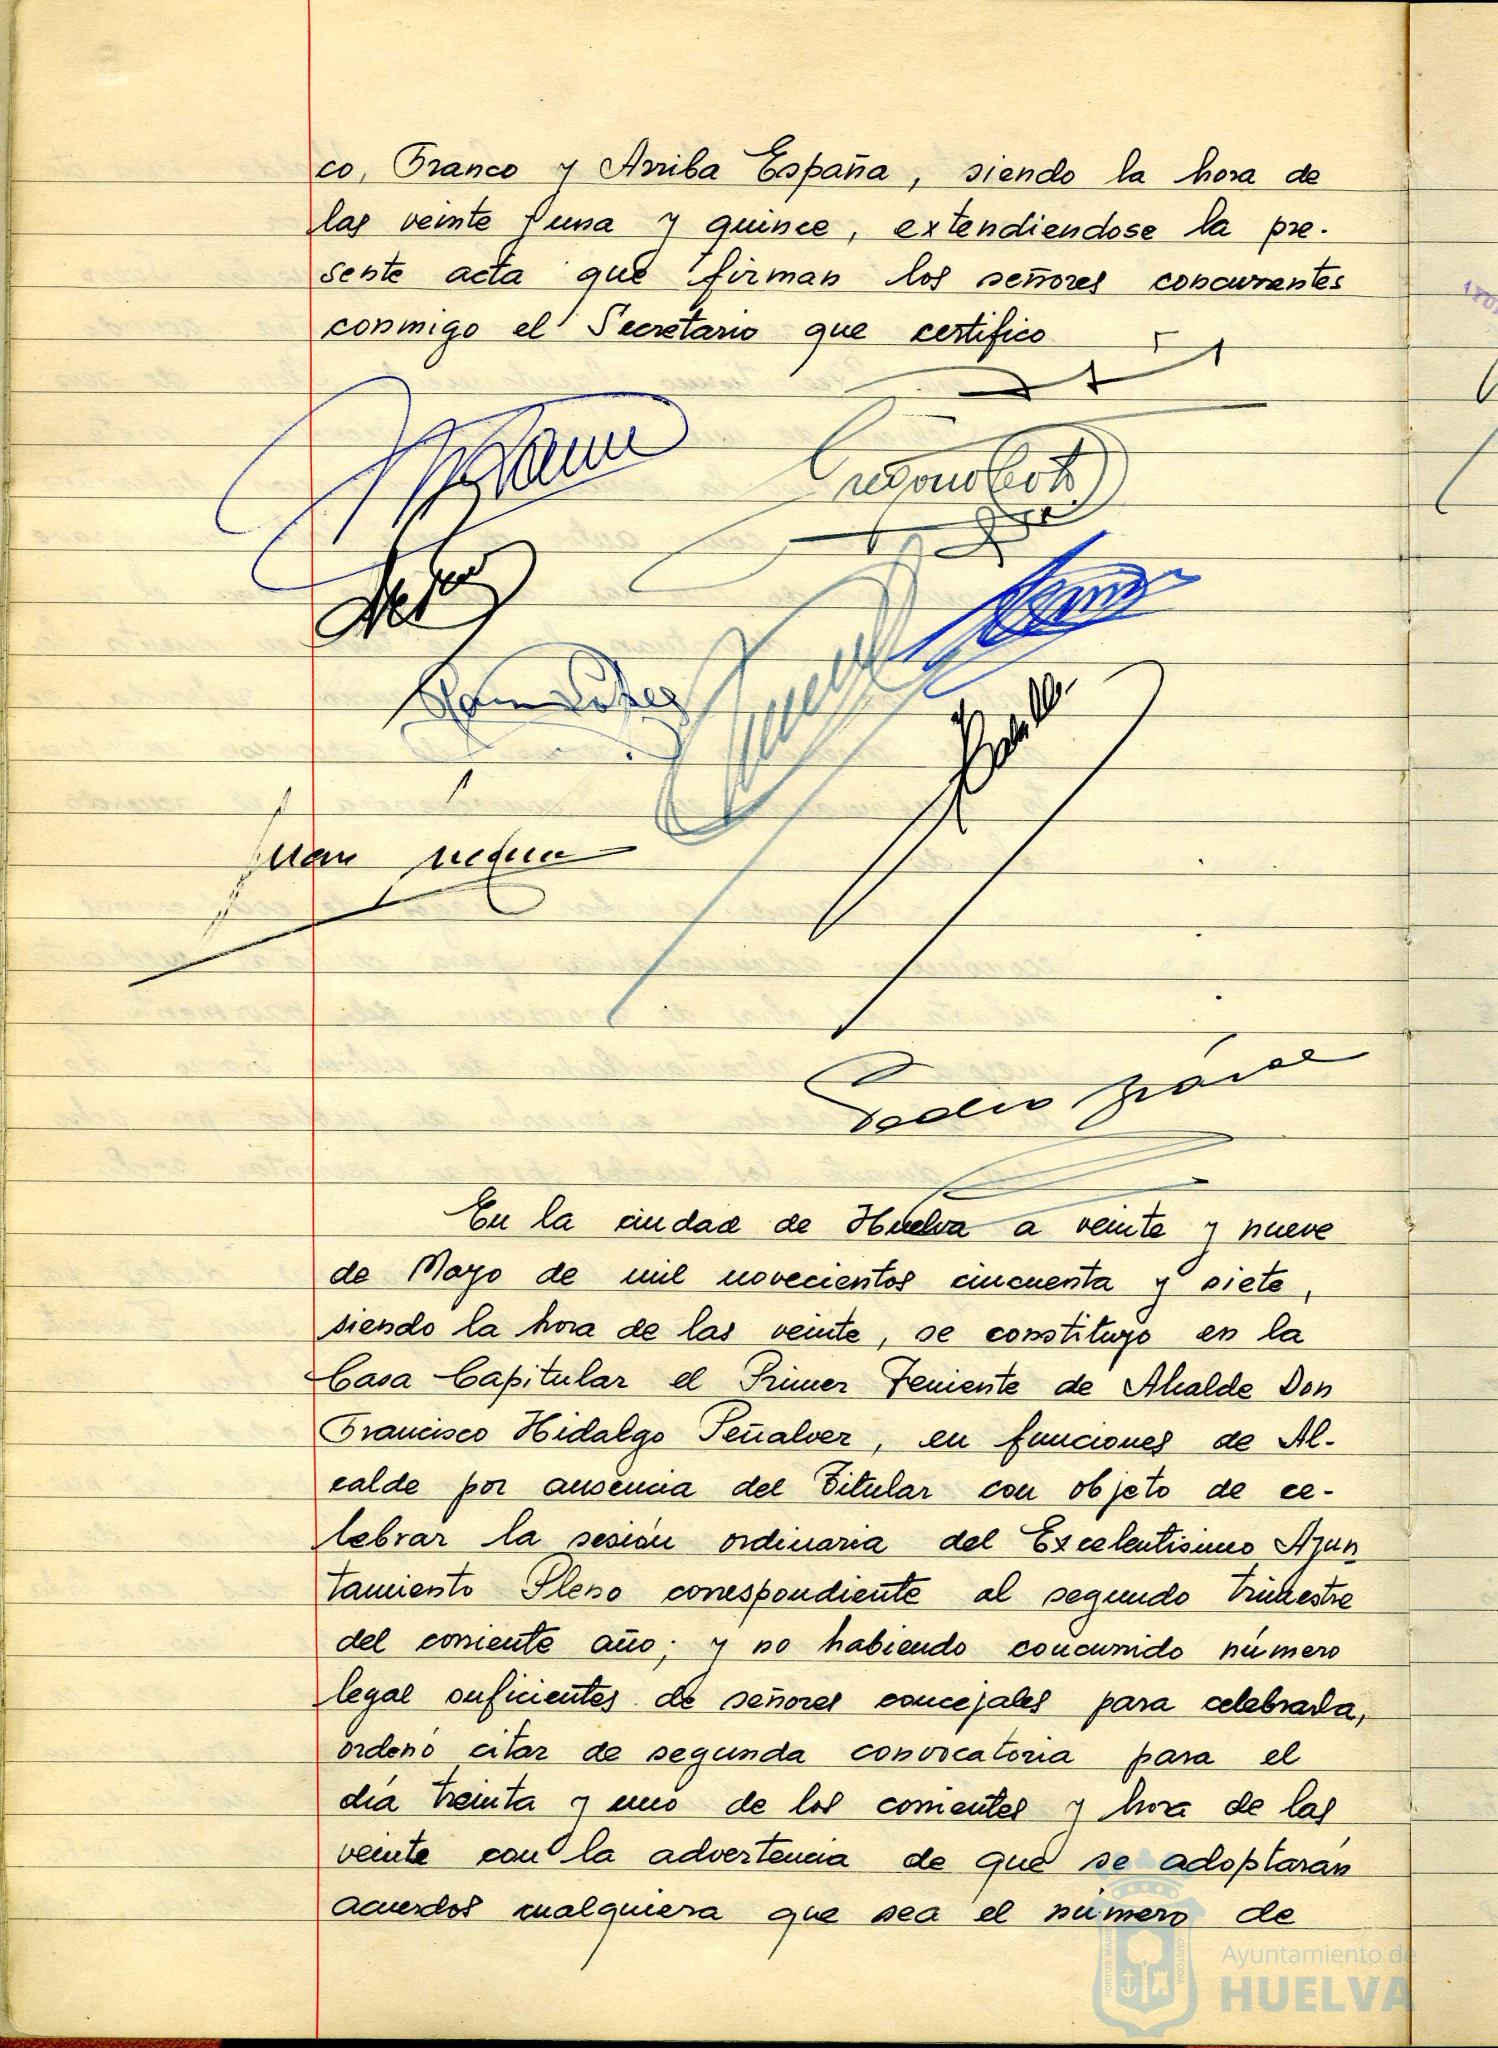 co, Franco y Arriba España, siendo la hora de
las veinte y una y quince, extendiendose la pre-
sente acta que firman los señores concurrentes
conmigo el Secretario que certifico
Gregorio Soto
Ramon López
Juan
Pedro
En la ciudad de Huelva a veinte y nueve
de Mayo de mil novecientos cincuenta y siete,
siendo la hora de las veinte, se constituyo en la
Casa Capitular el Primer Teniente de Alcalde Don
Francisco Hidalgo Peñalver, en funciones de Al-
calde por ausencia del Titular con objeto de ce-
lebrar la sesión ordinaria del Excelentisimo Ayun
tamiento Pleno correspondiente al segundo trimestre
del corriente año; y no habiendo concurrido número
legal suficientes de señores concejales para celebrarla,
ordenó citar de segunda convocatoria para el
día treinta y uno de los corrientes y hora de las
veinte con la advertencia de que se adoptarán
acuerdos cualquiera que sea el número de
Ayuntamiento de
HUELVA